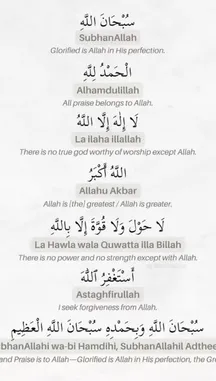 سُبْحَانَ اللَّهِ
SubhanAllah
Glorified is Allah in His perfection.
الْحَمْدُ لِلَّهِ
Alhamdulillah
All praise belongs to Allah.
لَا إِلَٰهَ إِلَّا اللَّهُ
La ilaha illallah
There is no true god worthy of worship except Allah.
اللَّهُ أَكْبَرُ
Allahu Akbar
Allah is [the] greatest / Allah is greater.
لَا حَوْلَ وَلَا قُوَّةَ إِلَّا بِاللَّهِ
La Hawla wala Quwatta illa Billah
There is no power and no strength except with Allah.
أَسْتَغْفِرُ اللَّهَ
Astaghfirullah
I seek forgiveness from Allah.
سُبْحَانَ اللَّهِ وَبِحَمْدِهِ سُبْحَانَ اللَّهِ الْعَظِيمِ
bhanAllahi wa-bi Hamdihi, SubhanAllahil Adthee
and Praise is to Allah—Glorified is Allah in His perfection, the Gr